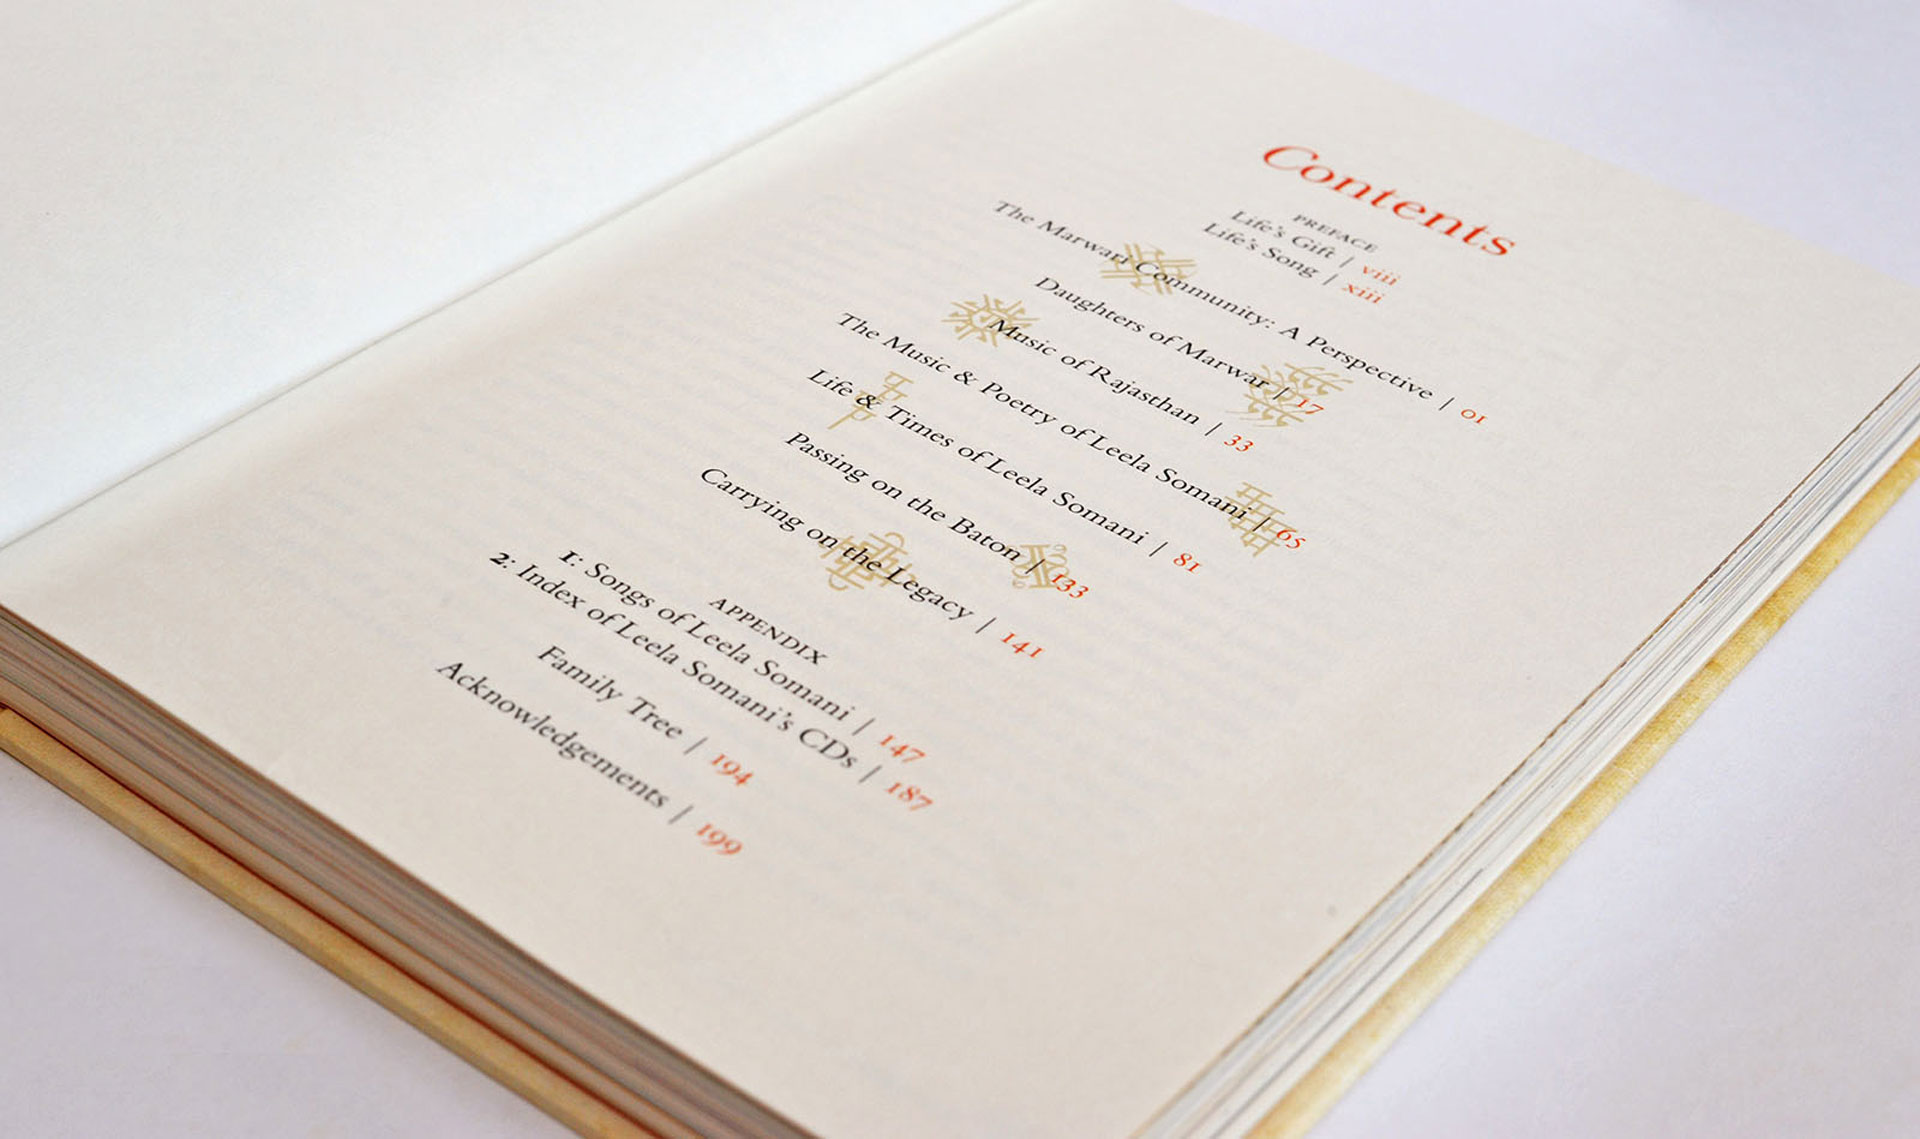 Contents
PREFACE
Life's Gift | viii
Life's Song | xiii
The Marwari Community: A Perspective | 01
Daughters of Marwar | 17
Music of Rajasthan | 33
The Music & Poetry of Leela Somani | 65
Life & Times of Leela Somani | 81
Passing on the Baton | 133
Carrying on the Legacy | 141
APPENDIX
1: Songs of Leela Somani | 147
2: Index of Leela Somani's CDs | 187
Family Tree | 194
Acknowledgements | 199